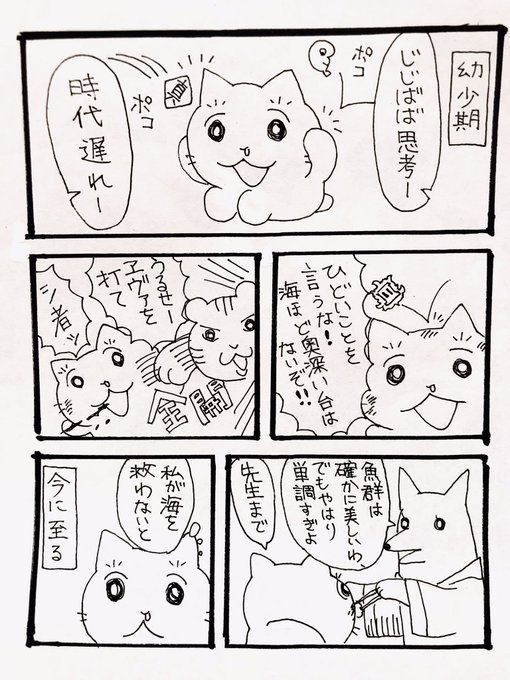 幼少期
じじばば思考ー
ポコ
ポコ
時代遅れー
ひどいことを
言うな!!
海ほど奥深い台は
ないぞ!!
うるせー
ヱヴァを
打て
魚群は
確かに美しいわ、
でもやはり
単調すぎよ
先生まで
私が海を
救わないと
今に至る